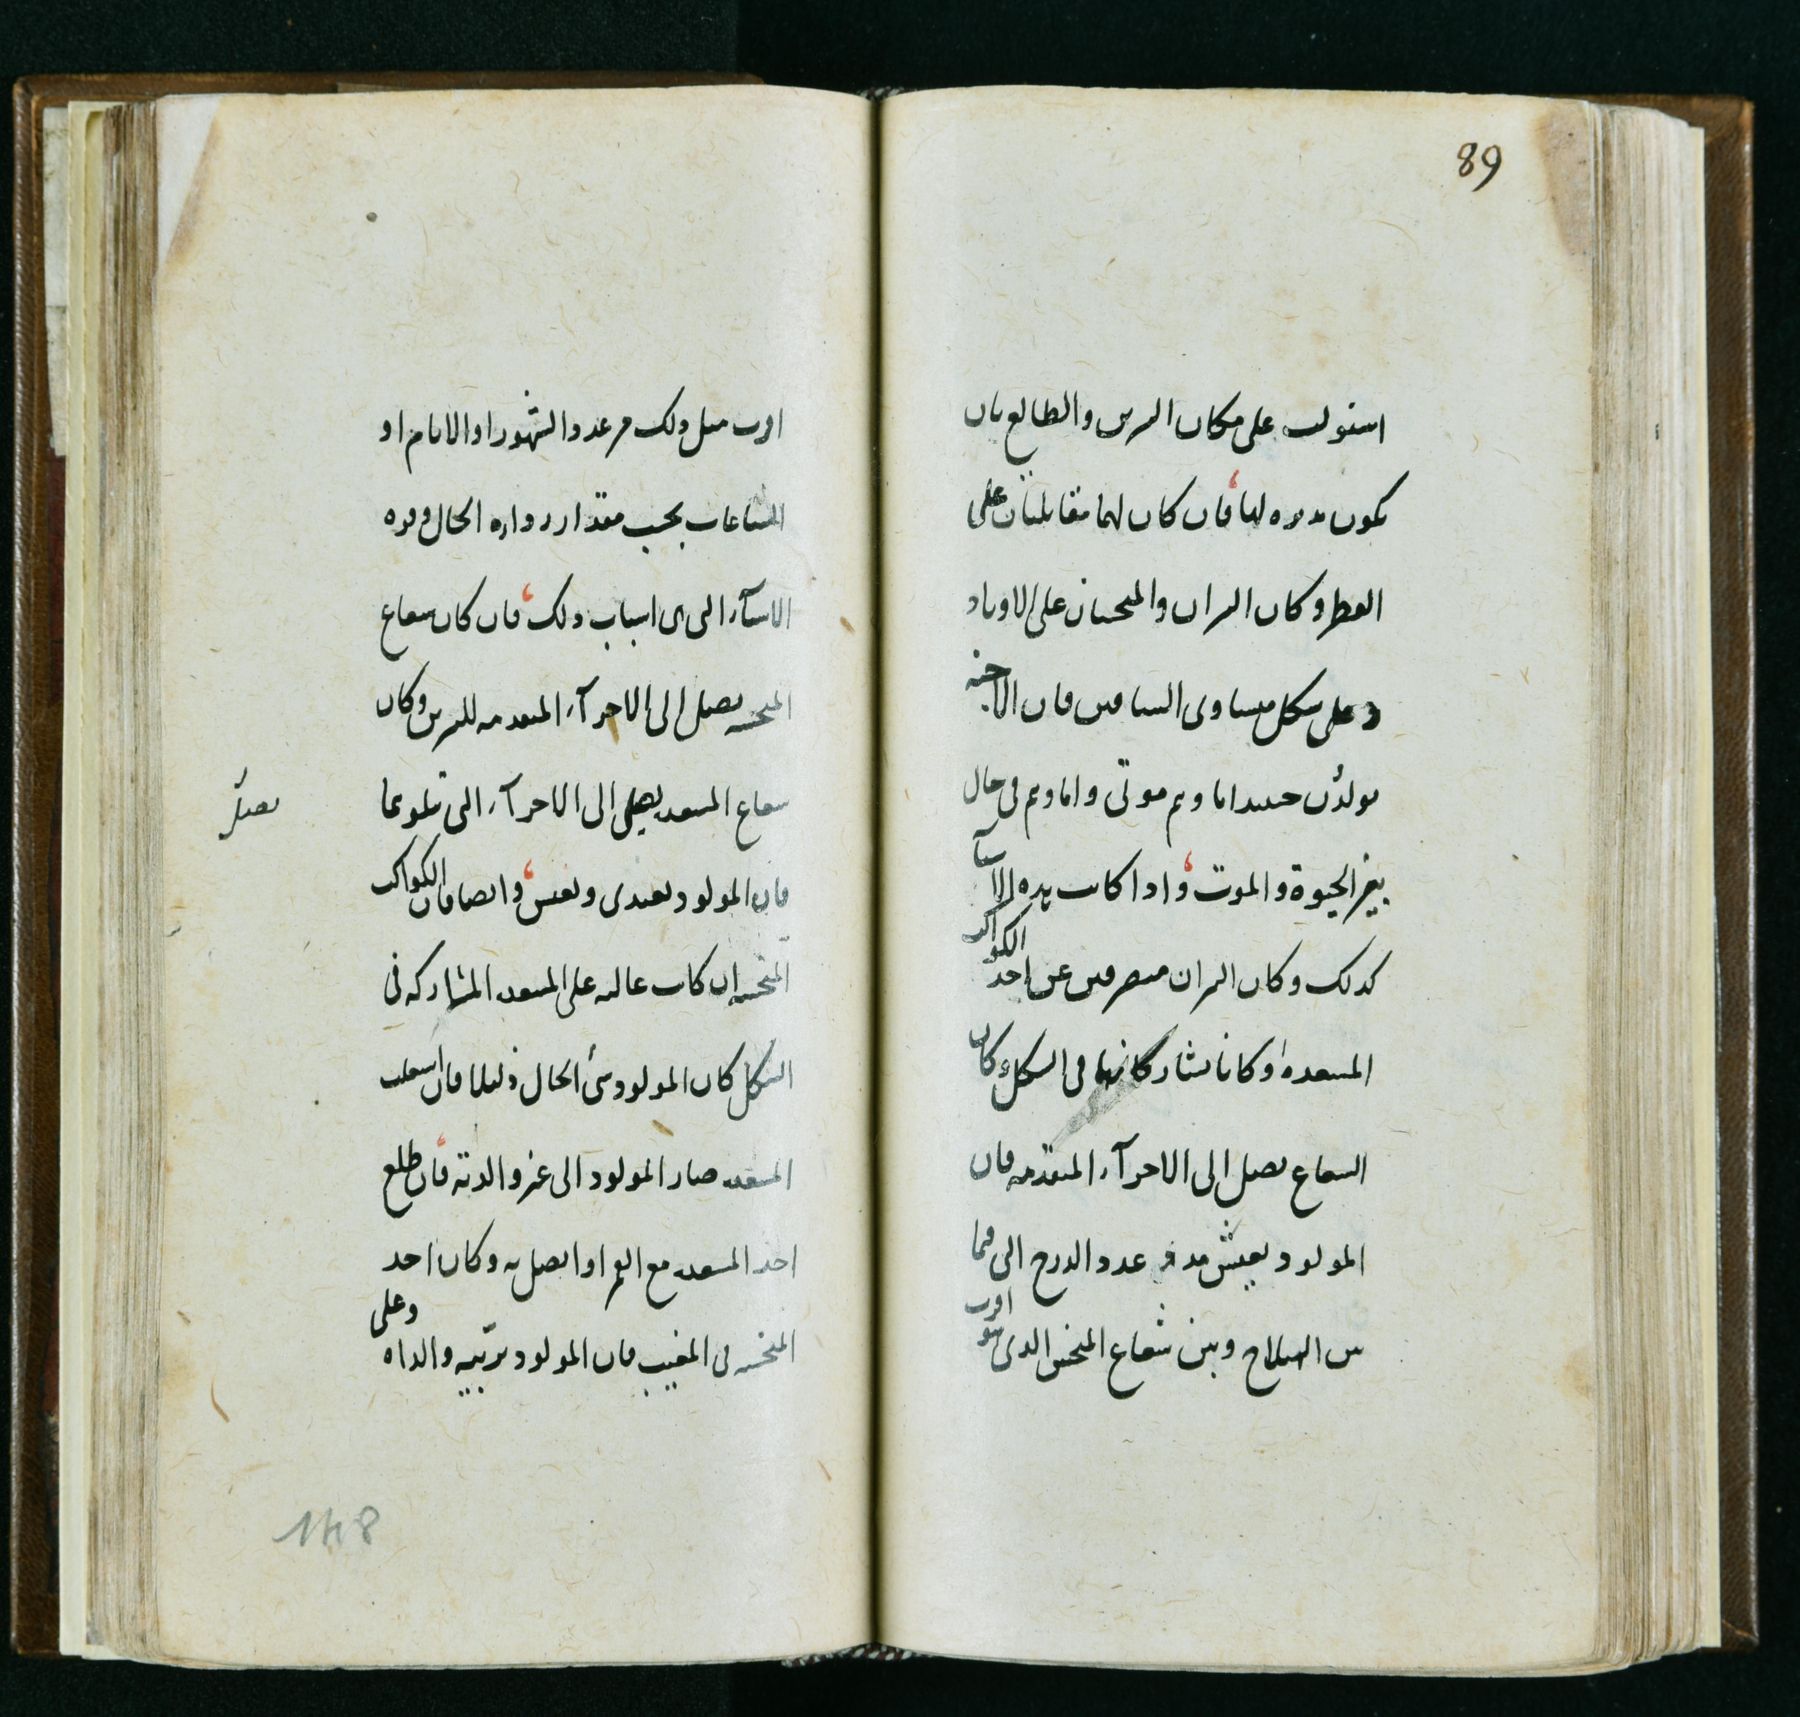 89
استولت على مكان النيرين والطالع بان
يكون مدبره لها فان كان لهما مقابلتان على
القطر وكان النيران والمنحسان على الاوتاد
وعلى شكل متساوى الساقين فان الاجنه
يولدون حينئذ اما وهم موتى واما وهم فى حال
بين الحيوة والموت واذا كانت هذه الاشيآ
كذلك وكان النيران منصرفين عن احد الكواكب
المسعده او كانا يشاركانها فى الشكل وكان
الشعاع يصل الى الاجزآء المتقدمه فان
المولود يعيش عدد الدرج التى فيما
بين وبين شعاع المنحس الذى هو اقرب
اوب مثل ذلك من عدد الشهور او الايام او
الساعات بحسب مقدار رداءه الحال وقوه
الاشيآء التى هى اسباب ذلك فان كان شعاع
المنحسه يصل الى الاجزآء المتقدمه للنيرين وكان
شعاع المسعده يصل الى الاجزآء التى تتلوهما
يصل
فان المولود يغتدى ويعيش وايضا فان الكواكب
المنحسه ان كانت عاليه على المسعده المشاركه فى
الشكل كان المولود سئ الحال ذليلا فان استعلت
المسعده صار المولود الى غير والديه فان طلع
احد المسعده مع القمر او اتصل به وكان احد
المنحسه فى المغيب فان المولود يربيه والداه وعلى
148